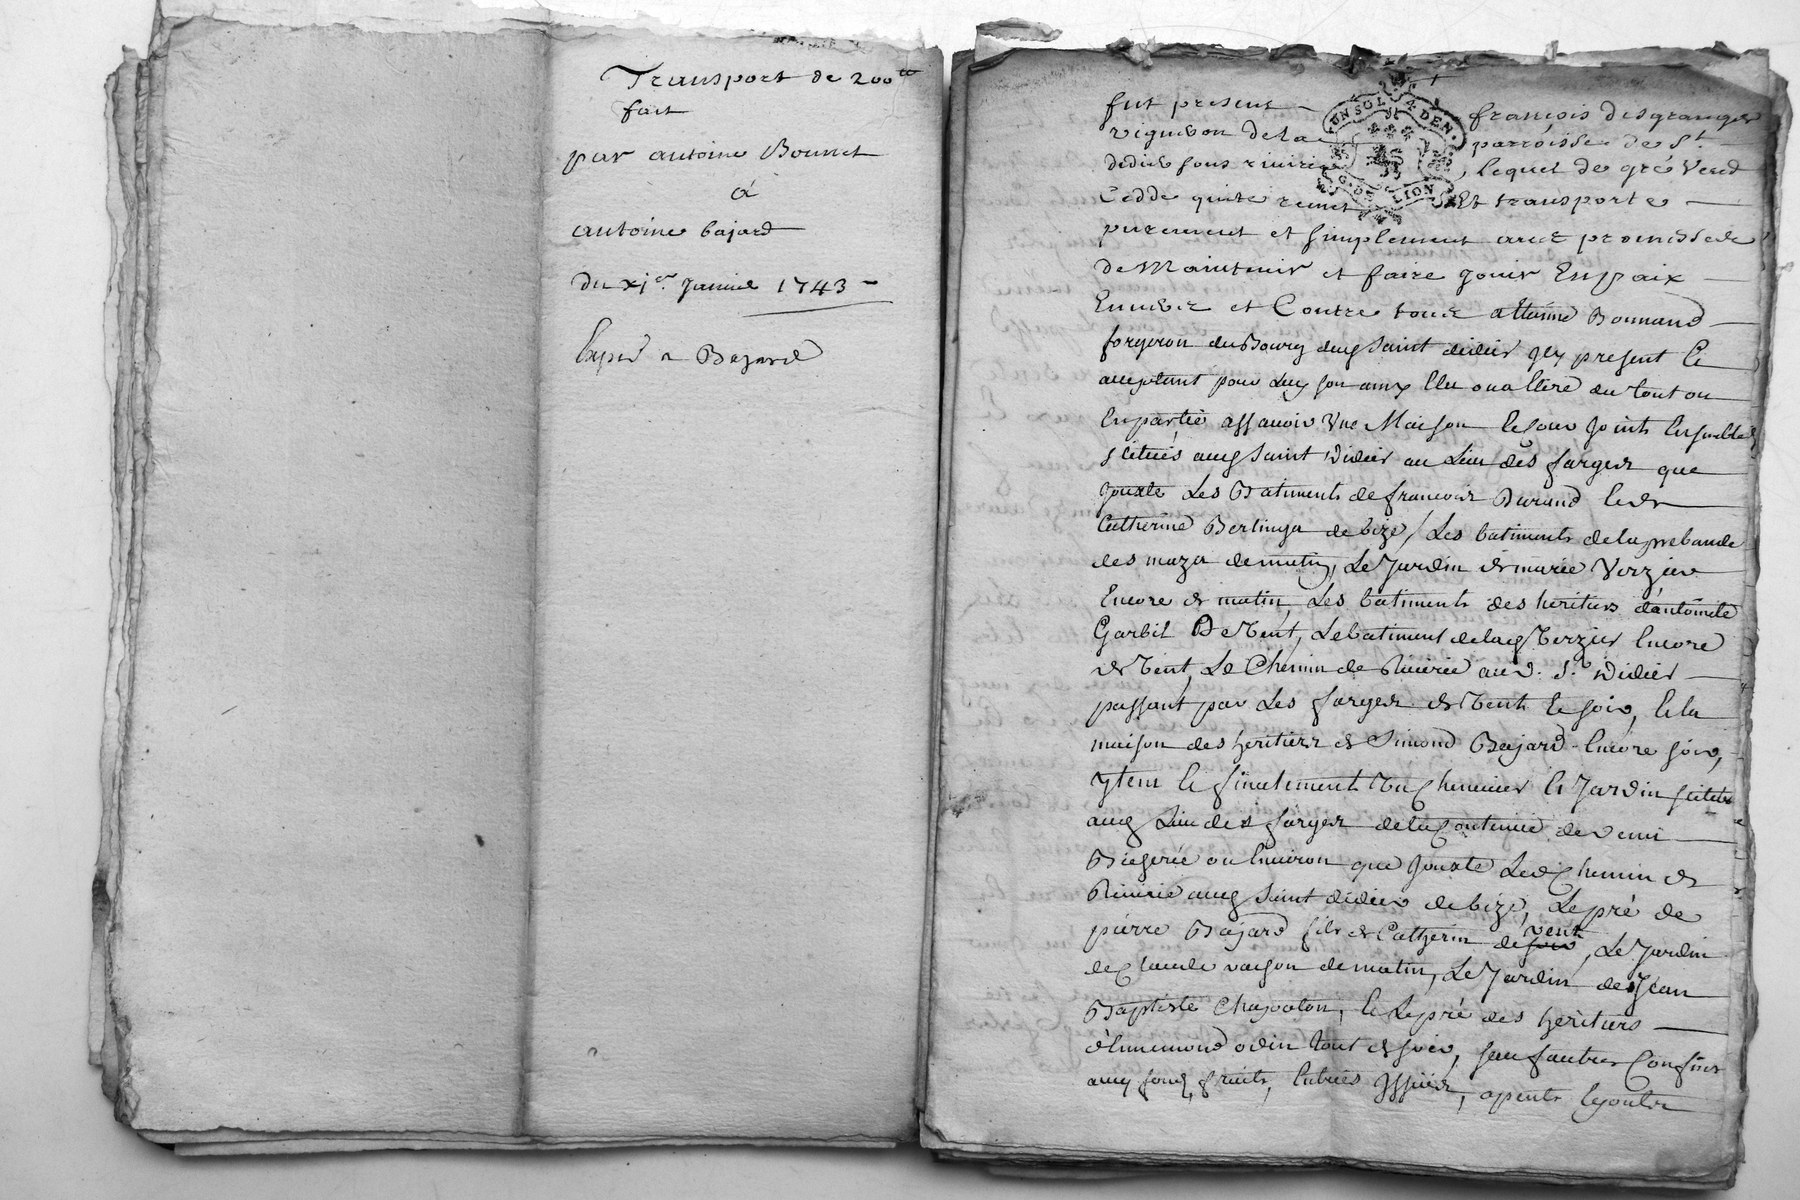 Transport de 200tt
fait
par antoine Bonnet
à
antoine bajard
du xje. Janvier 1743
Exped a Bajard
fut present
françois desgranges
vigneron de la
parroisse de St.
UN SOL 4 DEN.
G. DE LION
didier sous rivirie
, lequel de gré Vend
Cedde quitte remet
Et transporte
purement et simplement avec promesse
de Maintenir et faire jouir En paix
Envers et Contre tous a Bonnand
forgeron du Bourg dud saint didier jcy present et
acceptant pour Luy son amy Elu ou a Elire du tout ou
En partie assavoir Une Maison Et Cour joints Ensemble
scitués aud saint Didier au Lieu des farges que
jouxte Les Batiments de francois Durand et de
Catherine de bize, Les batiments de la prebande
des maza de matin, Le Jardin de marie Verzier
Encore de matin, Les batiments des heritiers d'antoine
Garbil De Vent, Le batiment de lad Verzier Encore
de Vent, Le Chemin de Riverie aud. St. Didier
passant par Les farges de Vent et soir, et la
maison des heritiers de Simond Bajard Encore soir,
ytem et finalement Un Chenevier et Jardin scitués
aud Lieu des farges de la Contenue de demi
Bicherée ou Environ que jouxte Led Chemin de
Riverie aud saint didier de bize, Le pré de
pierre Bajard fils de Catherin de soir vent, Le Jardin
de Claude de matin, Le Jardin de Jean
Baptiste Chapoton, et Le pré des heritiers
d'Ennemond odin tout de soir, sauf autres Confins
avec fond, fruits, Entrées jssües, apents Et jouts